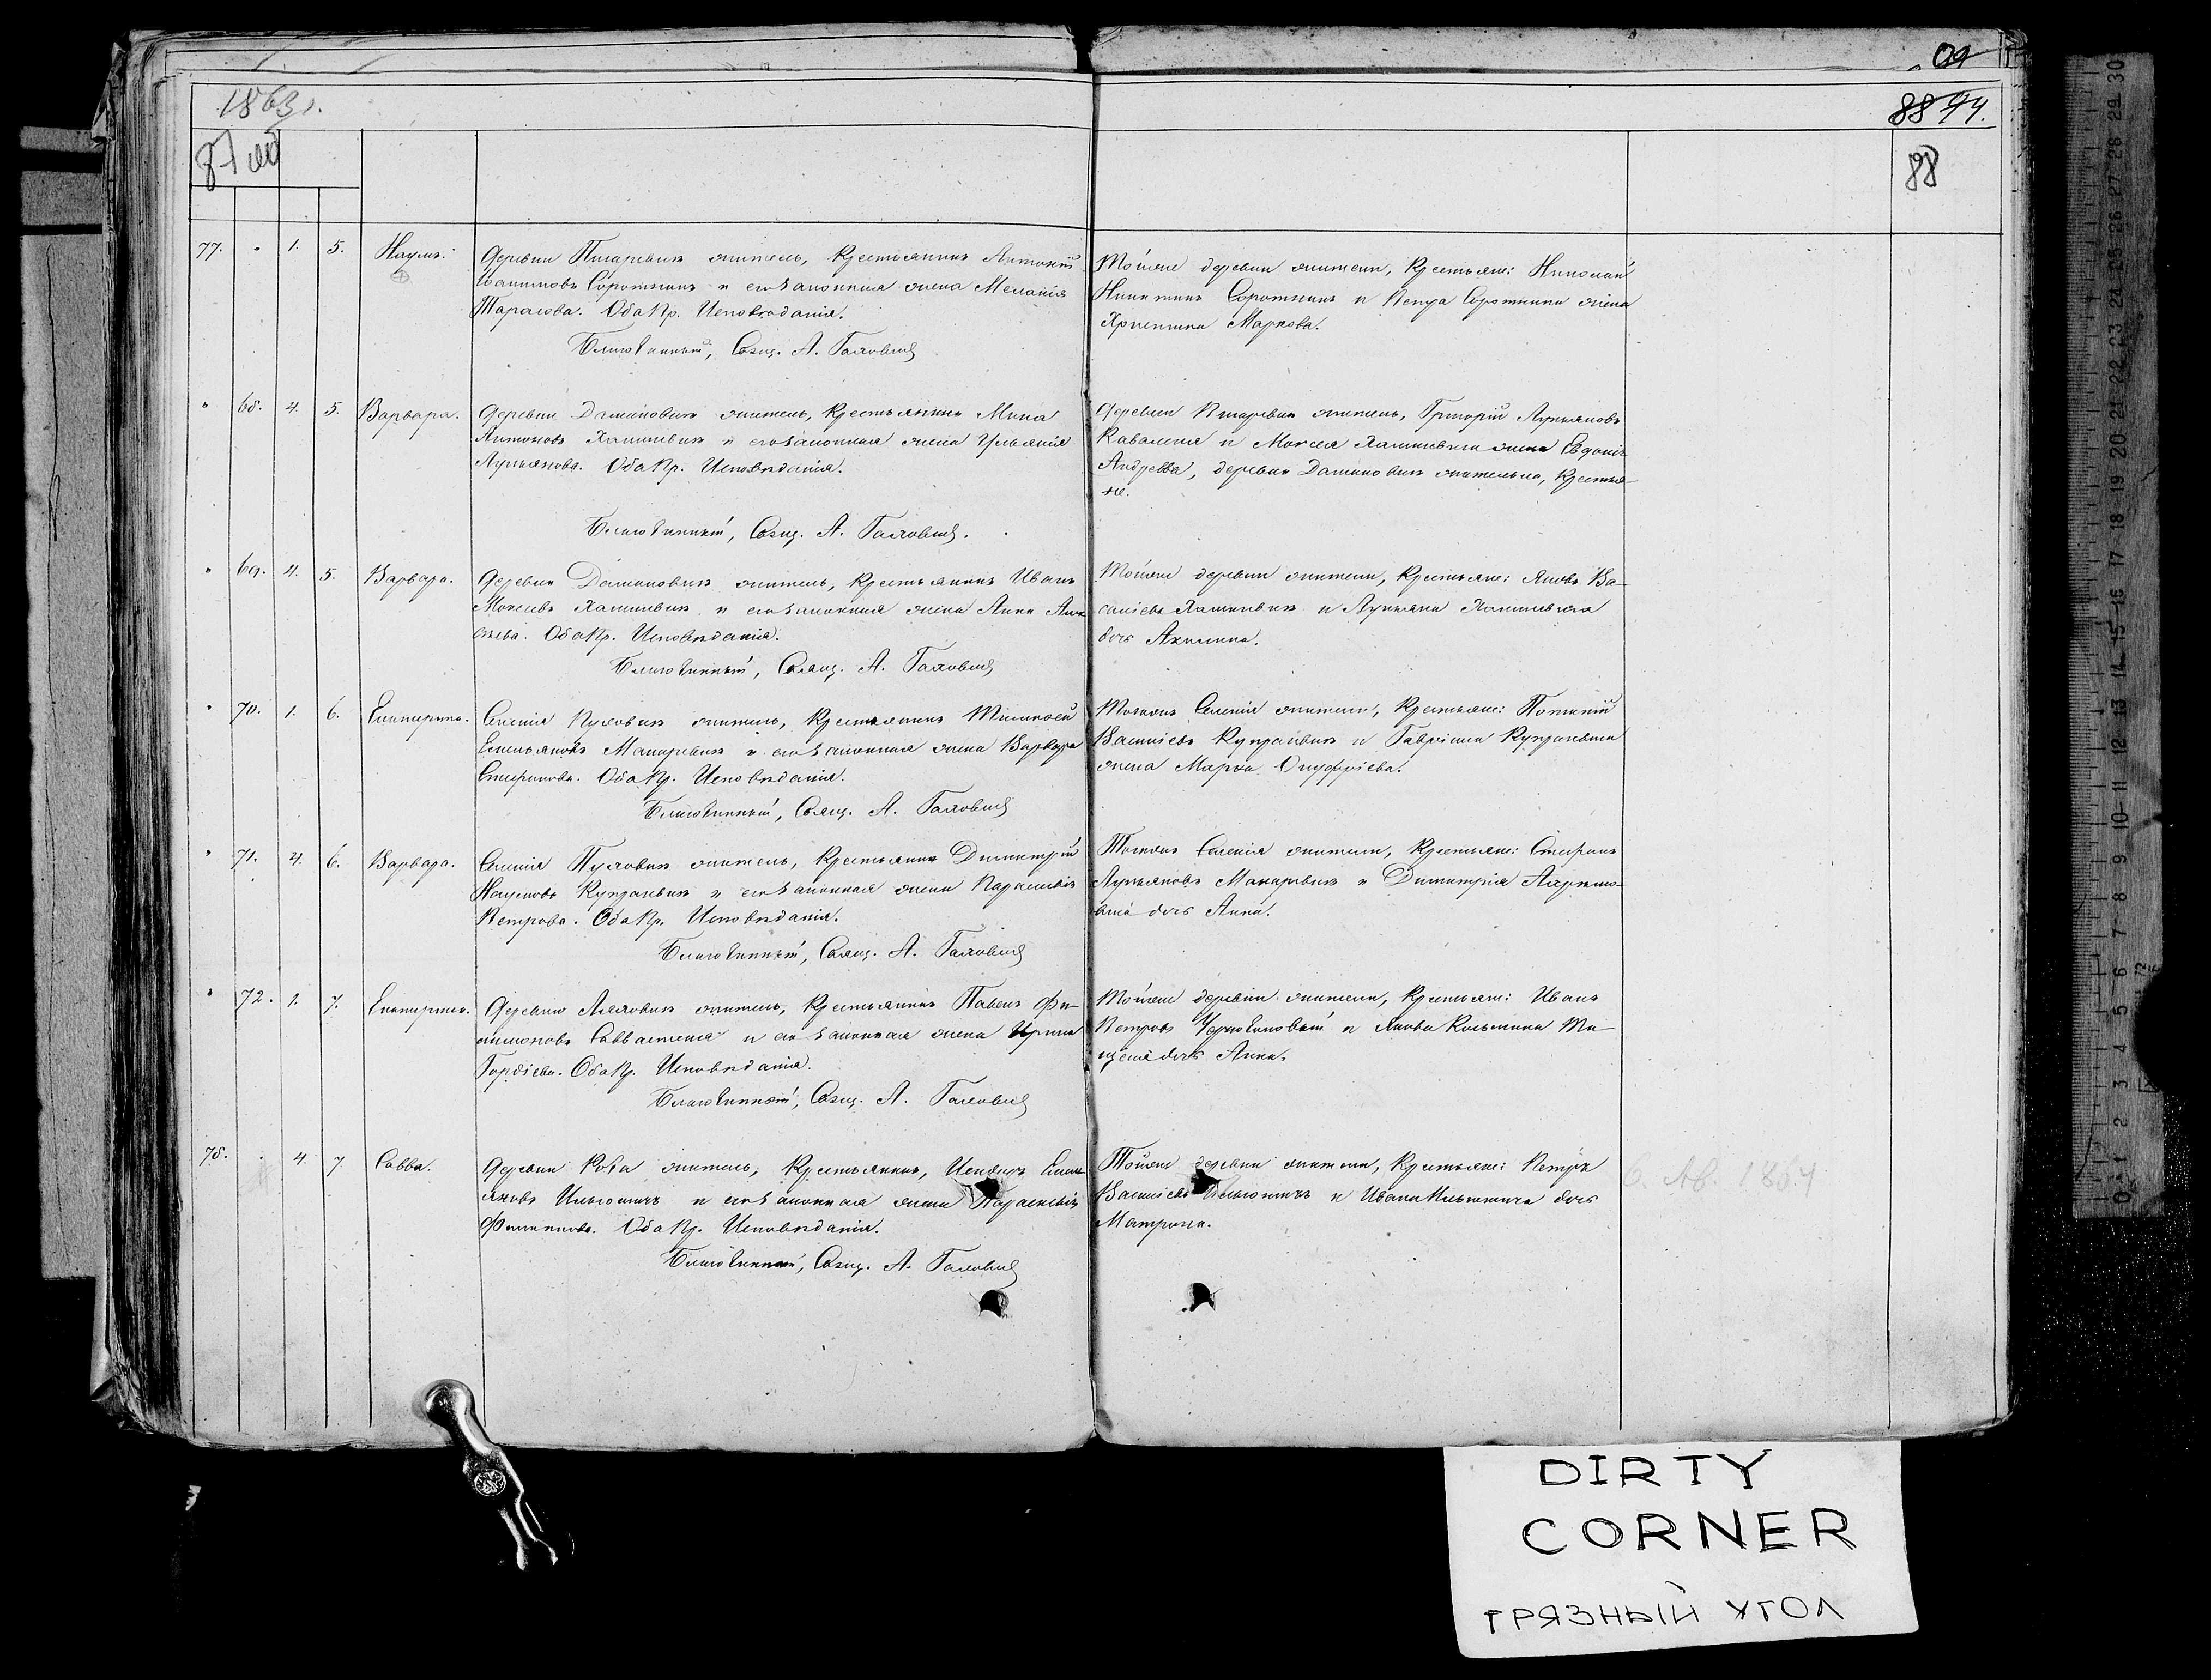 1863г.
88 94.
87 об
88
77. " 1. 5. Наумъ.
Деревни Писаревичъ житель, Крестьянинъ Антоній
Іоакимовъ Сороткинъ и его законная жена Меланія
Тарасова. Оба Пр. Исповѣданія.
Благочинный, Свящ. А. Галковскій
Тойже деревни жители, Крестьяне: Николай
Никитинъ Сороткинъ и Петра Сороткина жена
Христина Маркова.
" 68. 4. 5. Варвара.
Деревни Домановичъ житель, Крестьянинъ Мина
Антоновъ и его законная жена Ульянія
Лукьянова. Оба Пр. Исповѣданія.
Благочинный, Свящ. А. Галковскій.
Деревни Писаревичъ житель, Григорій Лукьяновъ
Каваленя и Моисея жена Евдокія
Андреева, деревни Домановичъ жительница, Крестья-
не.
" 69. 4. 5. Варвара.
Деревни Домановичъ житель, Крестьянинъ Иванъ
Моисеевъ и его законная жена Анна
Оба Пр. Исповѣданія.
Благочинный, Свящ. А. Галковскій
Тойже деревни жители, Крестьяне: Яковъ Ва-
силіевъ и Лукьяна
дочь Акилина.
" 70. 1. 6. Екатерина.
Селенія Пуховичъ житель, Крестьянинъ Тимофей
Емельяновъ Макаревичъ и его законная жена Варвара
Стефанова. Оба Пр. Исповѣданія.
Благочинный, Свящ. А. Галковскій
Тогожъ Селенія жители, Крестьяне:
Василіевъ Купраневичъ и Гавріила Купраневича
жена Марѳа Онуфріева.
" 71. 4. 6. Варвара.
Селенія Пуховичъ житель, Крестьянинъ Димитрій
Наумовъ Купраневичъ и его законная жена Параскевія
Петрова. Оба Пр. Исповѣданія.
Благочинный, Свящ. А. Галковскій
Тогожъ Селенія жители, Крестьяне: Стефанъ
Лукьяновъ Макаревичъ и Димитрія
дочь Анна.
" 72. 1. 7. Екатерина.
Деревни Ляховичъ житель, Крестьянинъ Павелъ Фи-
лимоновъ и его законная жена Ирина
Гордіева. Оба Пр. Исповѣданія.
Благочинный, Свящ. А. Галковскій
Тойже деревни жители, Крестьяне: Иванъ
Петровъ и Якова Козьмина
дочь Анна.
78. " 4. 7. Савва.
Деревни житель, Крестьянинъ, Емель-
яновъ Ильютичъ и его законная жена Параскевія
Филиппова. Оба Пр. Исповѣданія.
Благочинный, Свящ. А. Галковскій
Тойже деревни жители, Крестьяне: Петръ
Василіевъ Ильютичъ и Ивана Ильютича дочь
Матрона.
6. Ав. 1864
DIRTY
CORNER
ГРЯЗНЫЙ УГОЛ
0 1 2 3 4 5 6 7 8 9 10 11 12 13 14 15 16 17 18 19 20 21 22 23 24 25 26 27 28 29 30